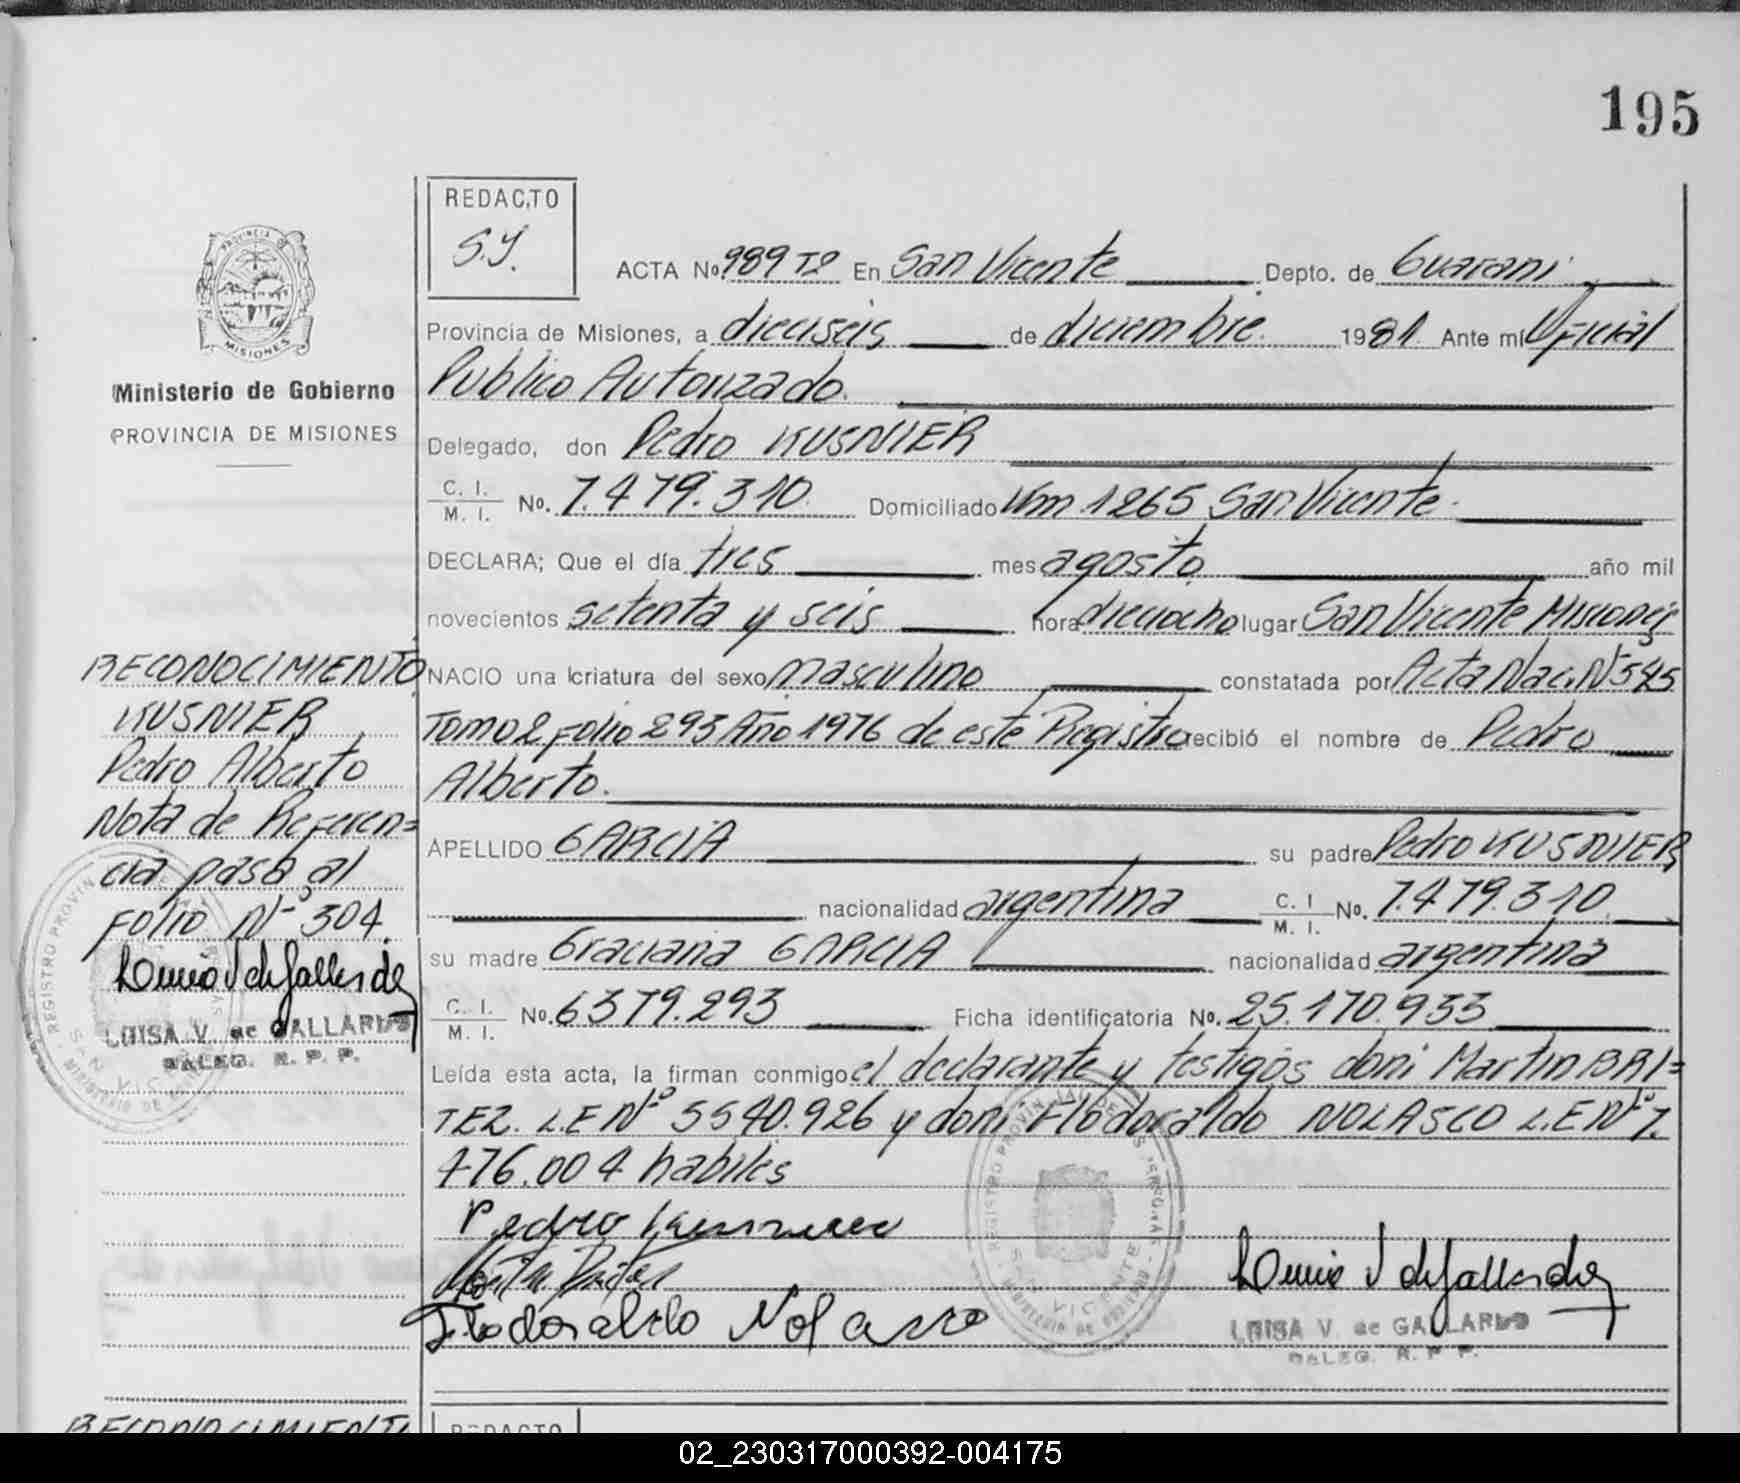 195
REDACTO
S.Y.
PROVINCIA DE
MISIONES
Ministerio de Gobierno
PROVINCIA DE MISIONES
ACTA No. 989 Tº En San Vicente Depto. de Guaraní
Provincia de Misiones, a dieciseis de diciembre. 1981. Ante mí Oficial
Publico Autorizado.
Delegado, don Pedro KUSNIER
C. I. / M. I. No. 7.479.310. Domiciliado Km 1265 San Vicente.
DECLARA; Que el día tres mes agosto año mil
novecientos setenta y seis hora dieciocho lugar San Vicente Misiones
NACIO una criatura del sexo masculino constatada por Acta Nac. Nº 545
TOMO 2 Folio 293 Año 1976 de este Registro recibió el nombre de Pedro
Alberto.
APELLIDO GARCIA su padre Pedro KUSNIER
nacionalidad argentina C. I / M. I. No. 7.479.310
su madre Graciana GARCIA nacionalidad argentina
C. I. / M. I. No. 6379.293 Ficha identificatoria No. 25.170.933
Leída esta acta, la firman conmigo el declarante y testigos don: Martin BRI=
TEZ. L.E Nº 5540.926 y don: Flodoraldo NOLASCO L.E Nº 7.
476.004 habiles
Pedro
Flodoraldo Nolasco
LUISA V. de GALLARDO
DELEG. R. P. P.
RECONOCIMIENTO
KUSNIER
Pedro Alberto
Nota de Referen=
cia pasa al
Folio Nº 304.
LUISA V. de GALLARDO
DELEG. R. P. P.
RECONOCIMIENTO
REDACTO
02_230317000392-004175